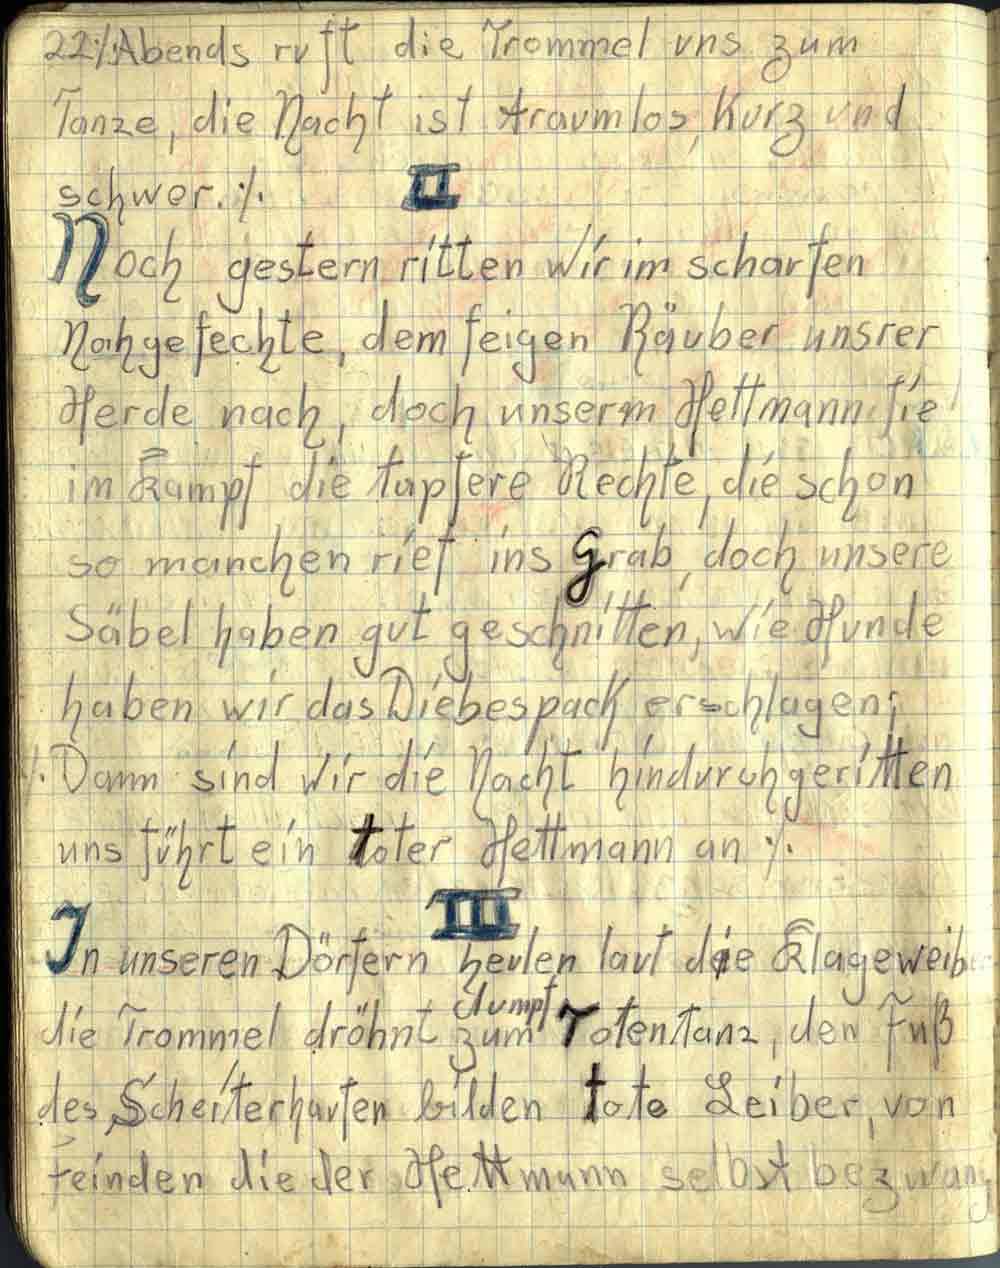 22 ·/. Abends ruft die Trommel uns zum
Tanze, die Nacht ist traumlos, Kurz und
schwer. ·/.
II
Noch gestern ritten Wir im scharfen
Nahgefechte, dem feigen Räuber unsrer
Herde nach, doch unserm Hettmann fie
im Kampf die tapfere Rechte, die schon
so manchen rief ins Grab, doch unsere
Säbel haben gut geschnitten, wie Hunde
haben wir das Diebespack erschlagen;
·/. Dann sind Wir die Nacht hindurchgeritten
uns führt ein toter Hettmann an ·/.
III
In unseren Dörfern heulen laut die Klageweiber
dumpf
die Trommel dröhnt zum Totentanz, den Fuß
des Scheiterhaufen bilden tote Leiber, von
Feinden die der Hettmann selbst bezwang